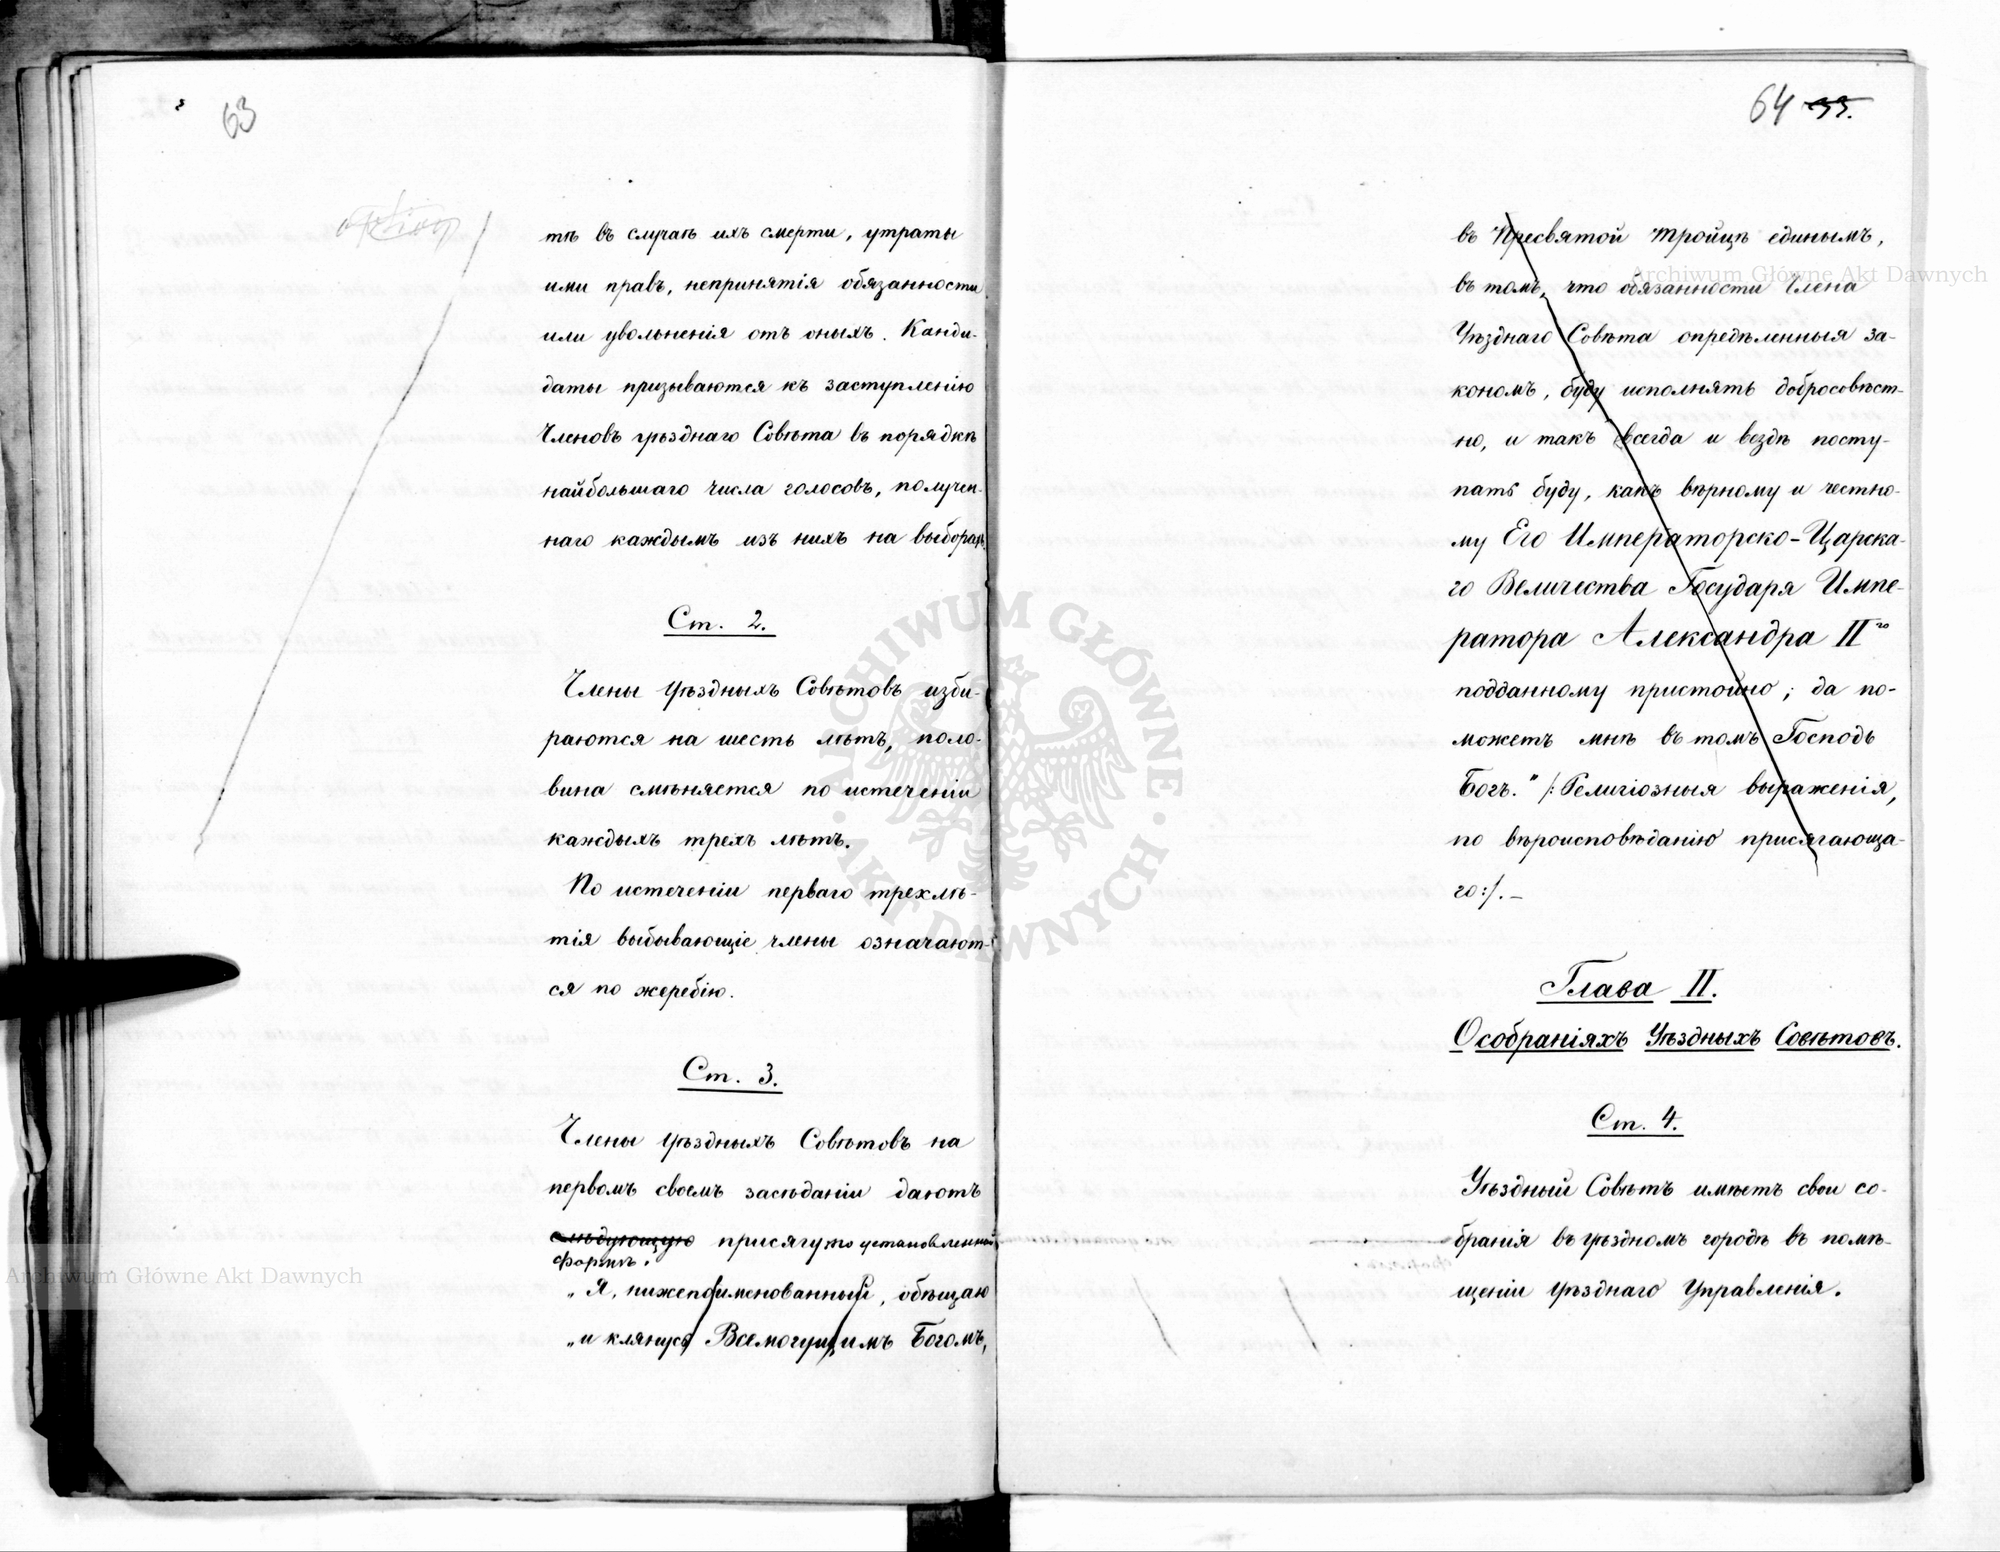 63
тѣ въ случаѣ ихъ смерти, утраты
ими правъ, непринятія обязанности
или увольненія отъ оныхъ. Канди-
даты призываются къ заступленію
Членовъ уѣзднаго Совѣта въ порядкѣ
найбольшаго числа голосовъ, получен-
наго каждымъ изъ нихъ на выборахъ.
Ст. 2.
Члены уѣздныхъ Совѣтовъ изби-
раются на шесть лѣтъ, поло-
вина смѣняется по истеченіи
каждыхъ трехъ лѣтъ.
По истеченіи перваго трехлѣ-
тія выбывающіе члены означают-
ся по жеребію.
Ст. 3.
Члены уѣздныхъ Совѣтовъ на
первомъ своемъ засѣданіи даютъ
слѣдующую присягу по установленной
формѣ.
„Я, нижепоименованный, обѣщаю
„и клянусь Всемогущимъ Богомъ,
64 33.
въ Пресвятой Тройцѣ единымъ,
въ томъ, что обязанности Члена
Уѣзднаго Совѣта опредѣленныя за-
кономъ, буду исполнять добросовѣст-
но, и такъ всегда и вездѣ посту-
пать буду, какъ вѣрному и честно-
му Его Императорско-Царска-
го Величества Государя Импе-
ратора Александра II го
подданному пристойно; да по-
можетъ мнѣ въ томъ Господь
Богъ." /: Религіозныя выраженія,
по вѣроисповѣданію присягающа-
го :/. –
Глава II.
О собраніяхъ Уѣздныхъ Совѣтовъ.
Ст. 4.
Уѣздный Совѣтъ имѣетъ свои со-
бранія въ уѣздномъ городѣ въ помѣ-
щеніи уѣзднаго Управленія.
Archiwum Główne Akt Dawnych
Archiwum Główne Akt Dawnych
ARCHIWUM GŁÓWNE · AKT DAWNYCH ·